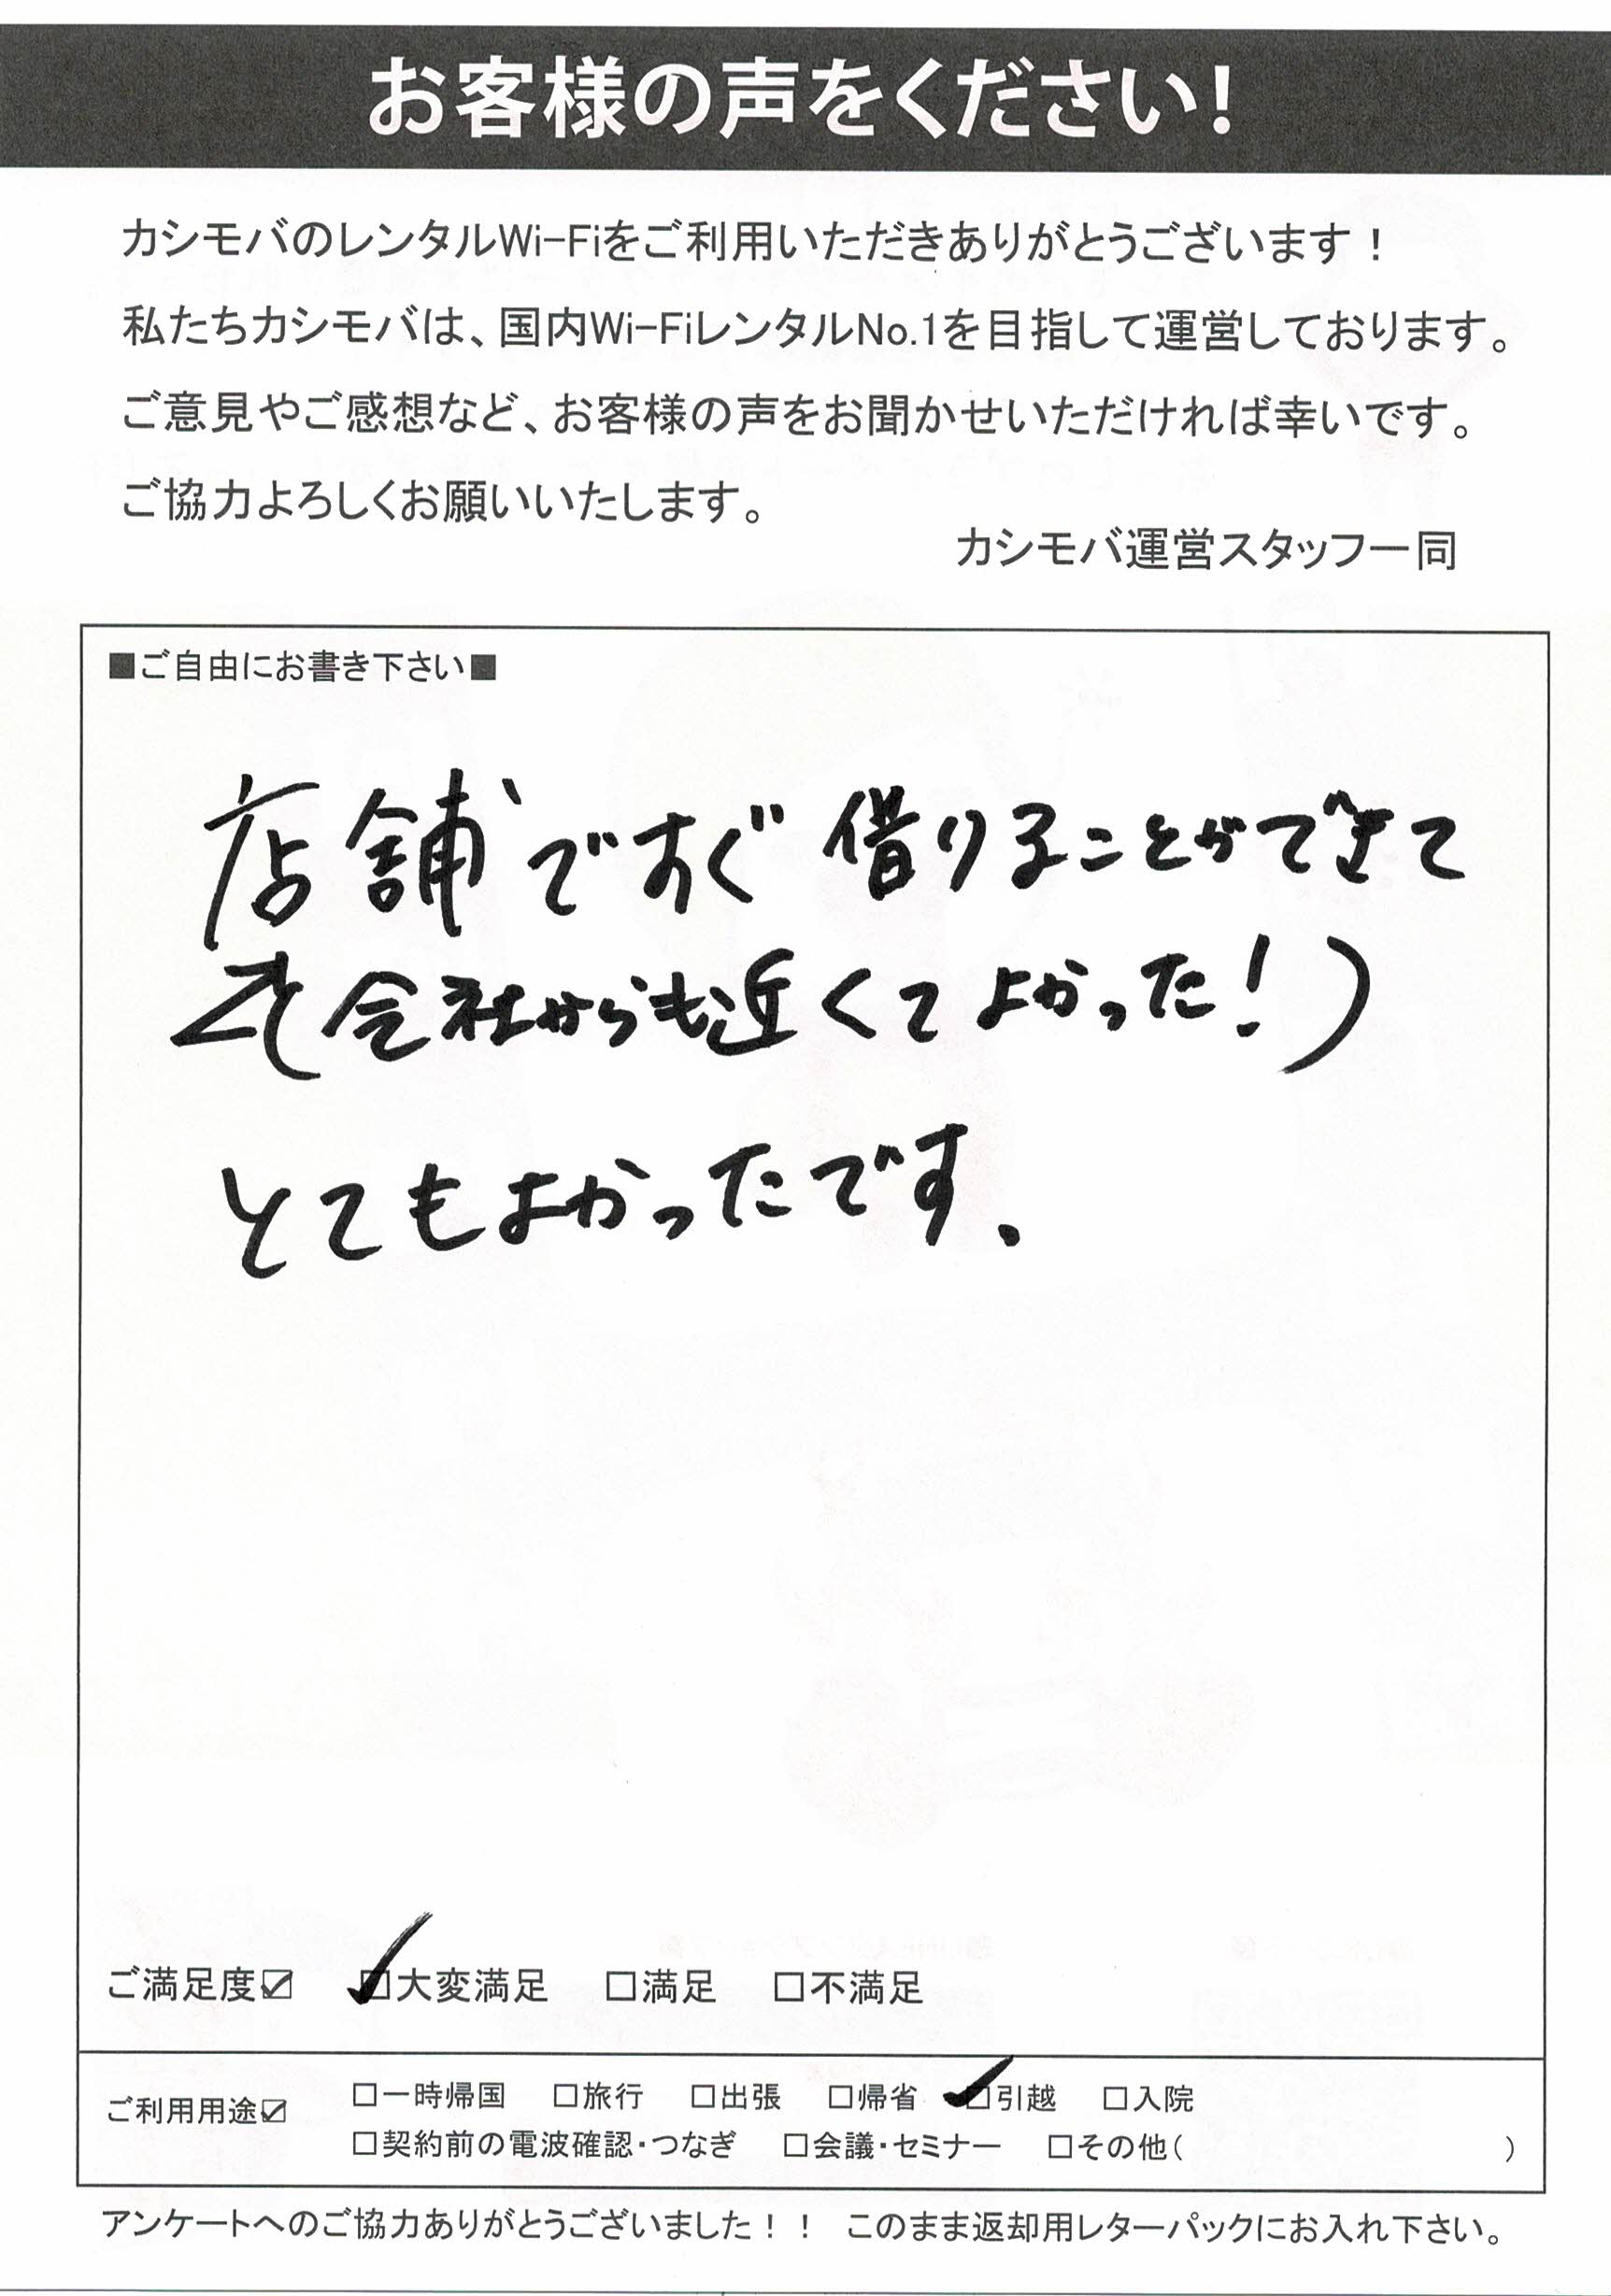 お客様の声をください！
カシモバのレンタルWi-Fiをご利用いただきありがとうございます！
私たちカシモバは、国内Wi-FiレンタルNo.1を目指して運営しております。
ご意見やご感想など、お客様の声をお聞かせいただければ幸いです。
ご協力よろしくお願いいたします。
カシモバ運営スタッフ一同
■ご自由にお書き下さい■
店舗ですぐ借りることができて
(会社からも近くてよかった！)
とてもよかったです。
ご満足度☑ ☑大変満足 □満足 □不満足
ご利用用途☑ □一時帰国 □旅行 □出張 □帰省 ☑引越 □入院
□契約前の電波確認・つなぎ □会議・セミナー □その他( )
アンケートへのご協力ありがとうございました！！ このまま返却用レターパックにお入れ下さい。